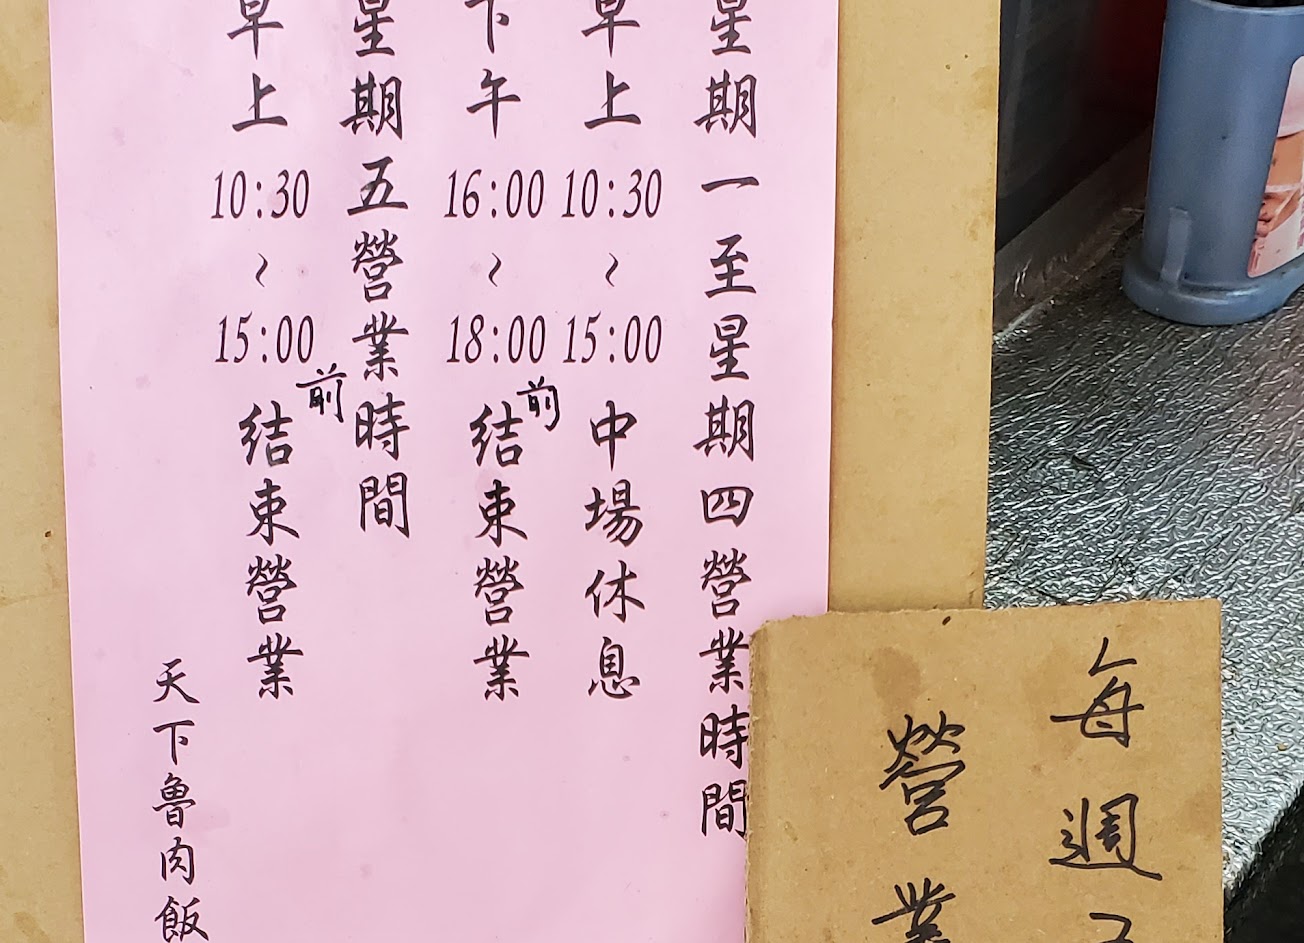 星期一至星期四營業時間
早上10:30~15:00中場休息
下午16:00~18:00前結束營業
星期五營業時間
早上10:30~15:00前結束營業
天下魯肉飯
每週
營業